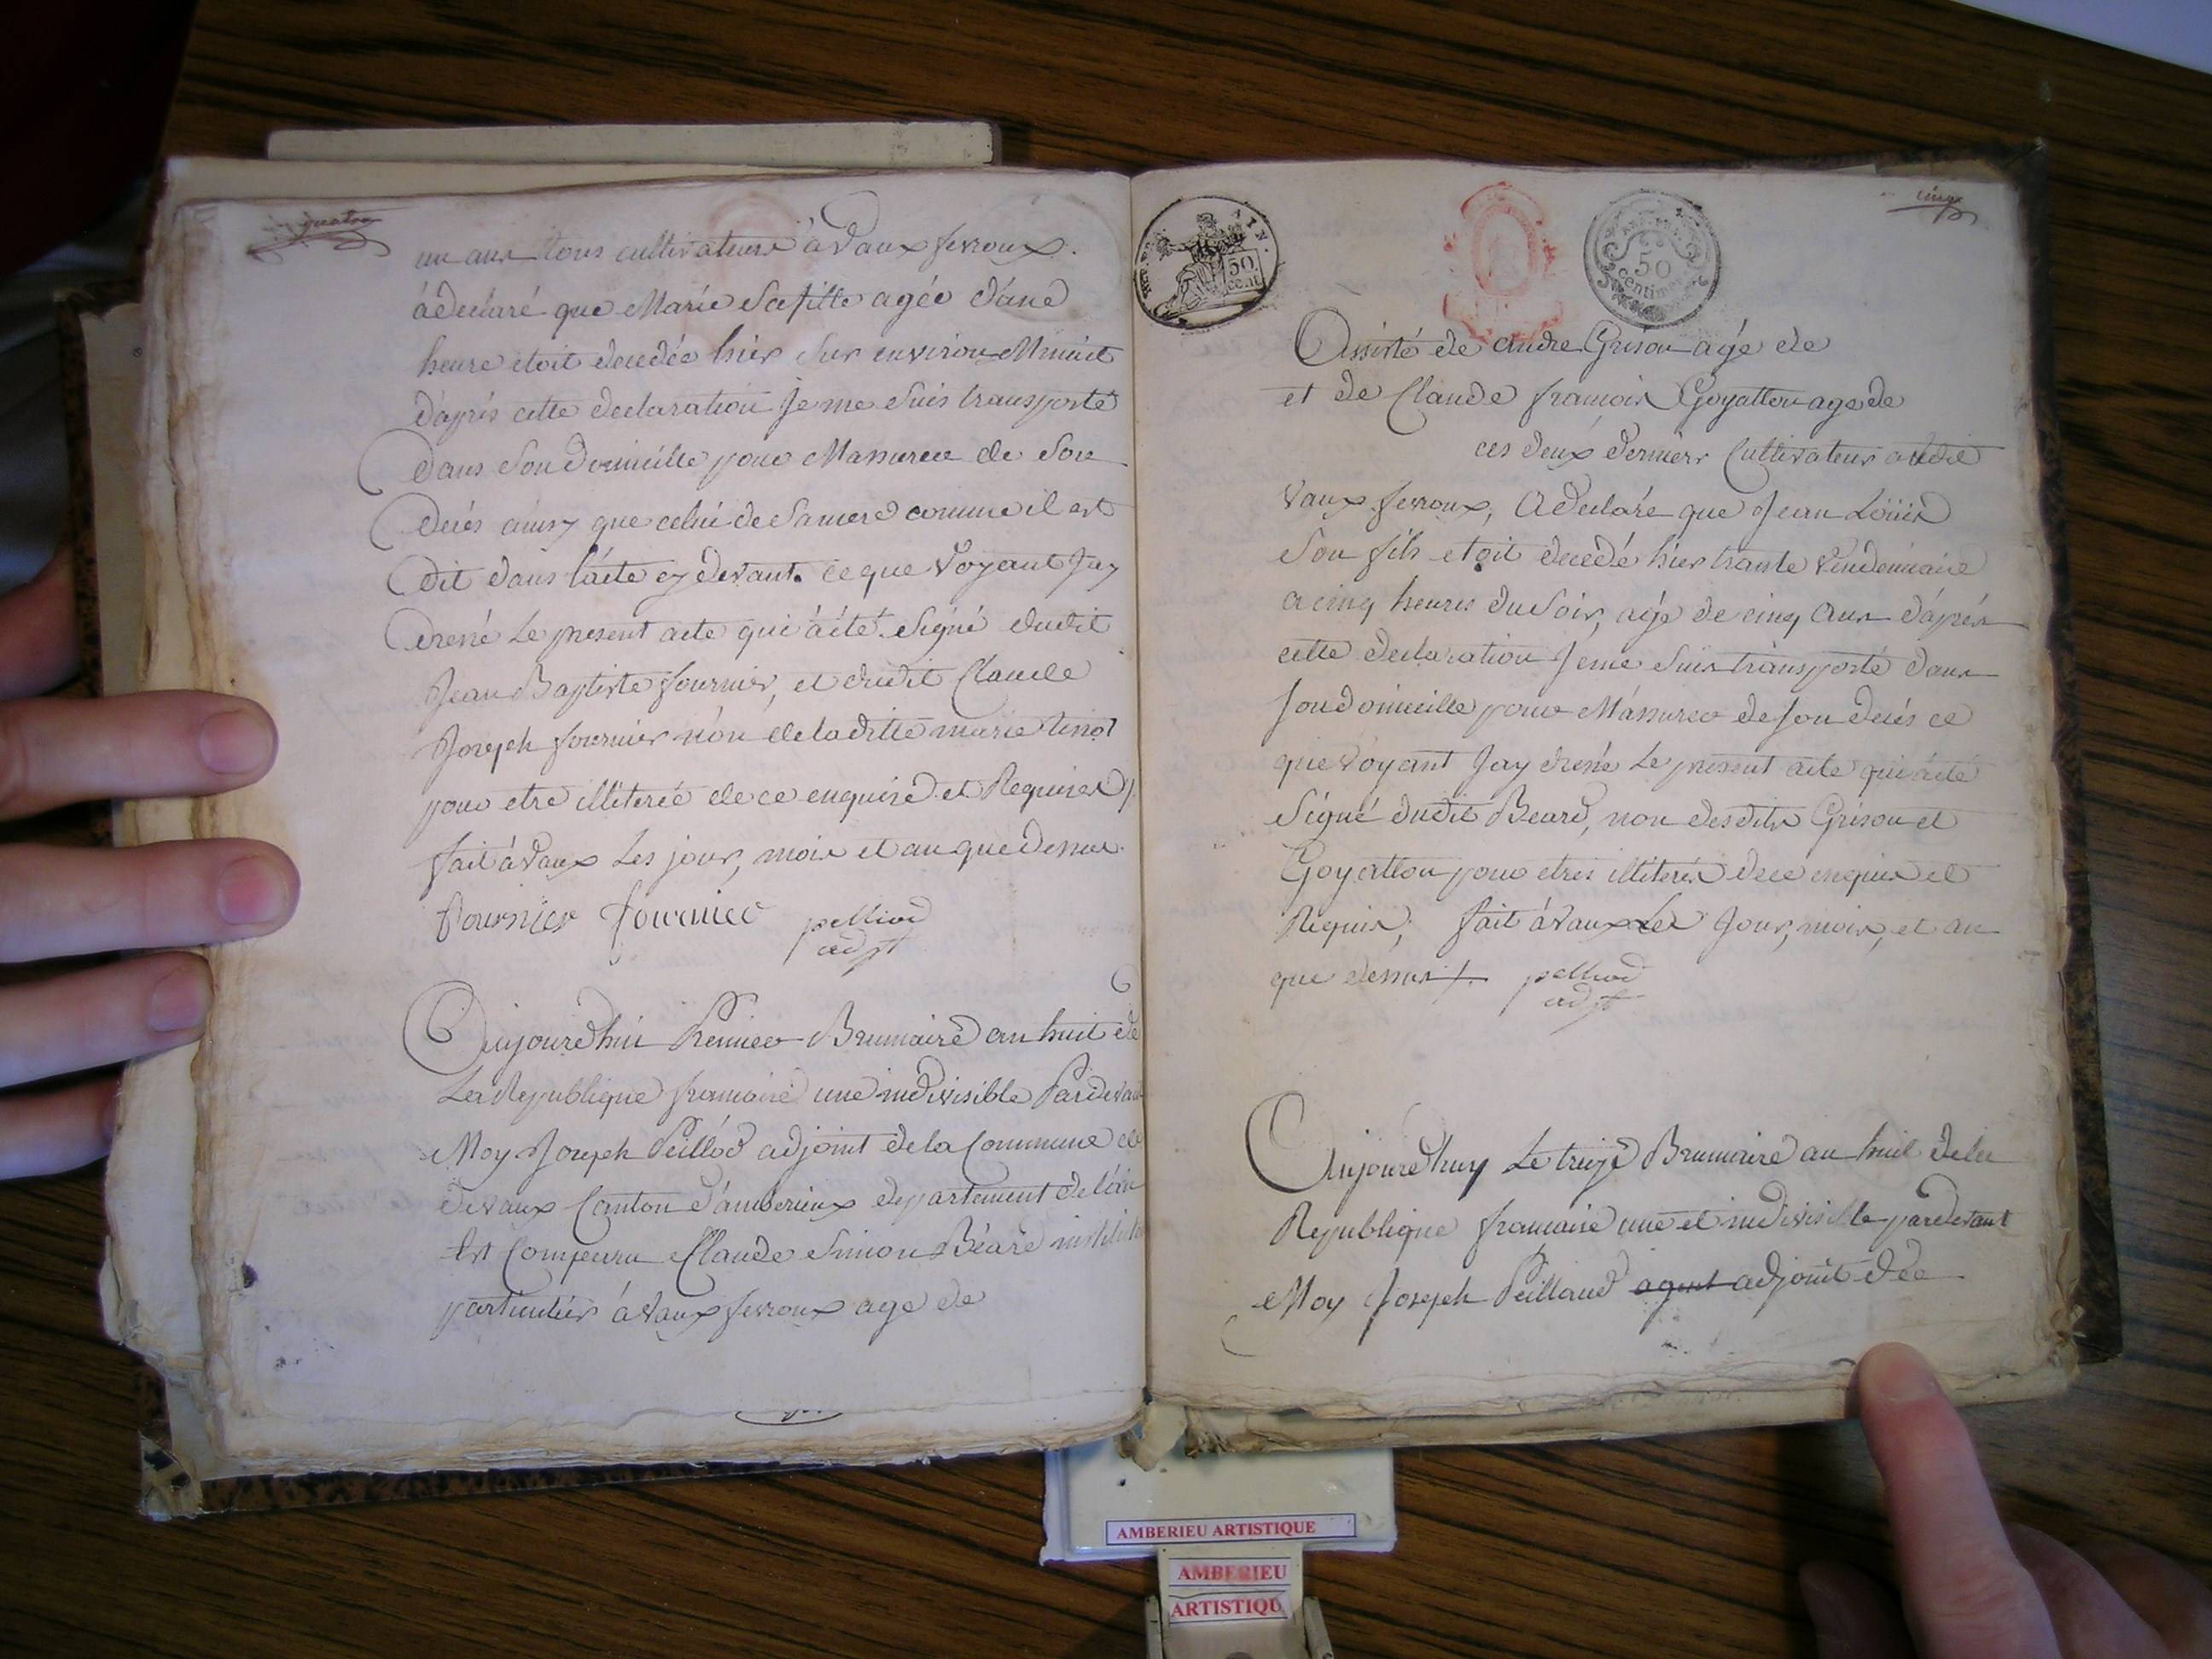 quatre
un ans tous cultivateurs à Vaux fevroux.
à declaré que Marie Sa fille agée d'une
heure etoit decedée hier Sur environ Minuit
d'après cette declaration Je me Suis transporté
dans Son domicille pour M'assurer de Son
decés ainsy que celui de Sa mere comme il est
dit dans l'acte cy devant. ce que Voyant J'ay
dressé Le present acte qui à été Signé dudit
Jean Baptiste fournier, et dudit Claude
Joseph fournier non de la ditte marie
pour etre illiterée de ce enquise et Requise
fait à Vaux Les jour, mois et an que dessus.
fournier fournier pelliod
adjt
Aujourdhui Premier Brumaire an huit de
La Republique francaise une indivisible Pardevant
Moy Joseph Peillod adjoint de la Commune de
de vaux Canton d'amberieux departement de l'ain
Est Comparu Claude Simon Béard
particulier à Vaux fevroux age de
AIN.
50
cent
50
centimes
cinq
Assisté de andre Grison agé de
et de Claude francois Goyatton age de
ces deux derniers Cultivateurs audit
Vaux fevroux, A declaré que Jean Loüis
Son fils etoit decedé hier trante Vendemiaire
a cinq heures du Soir, agé de cinq Ans d'après
cette declaration Je me Suis transporté dans
Son domicille pour M'assurer de Son decés ce
que Voyant J'ay dressé Le present acte qui à été
Signé dudit Beard, non desdits Grison et
Goyatton pour etres illiterés de ce enquis et
Requis; fait à Vaux Les Jour, mois, et an
que dessus pelliod
adjt
Aujourdhuy Le treize Brumaire an huit de la
Republique francaise une et indivisible pardevant
Moy Joseph Peillaud agent adjoint de
AMBERIEU ARTISTIQUE
AMBERIEU
ARTISTIQU